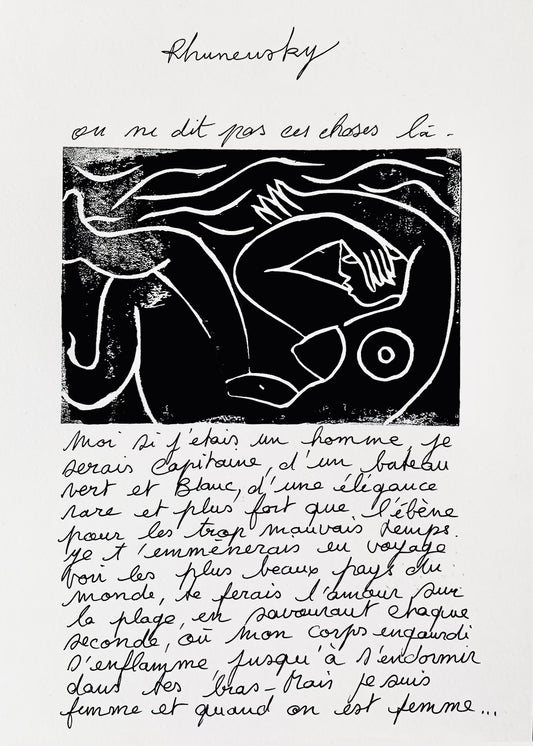 Rhunewsky
on ne dit pas ces choses là -
Moi si j'étais un homme, je
serais Capitaine, d'un bateau
vert et Blanc, d'une élégance
rare et plus fort que l'ébène
pour les trop mauvais temps.
Je t'emmènerais en voyage
voir les plus beaux pays du
monde, te ferais l'amour sur
la plage, en savourant chaque
seconde, où mon corps engourdi
s'enflamme jusqu'à s'endormir
dans tes bras - Mais je suis
femme et quand on est femme...